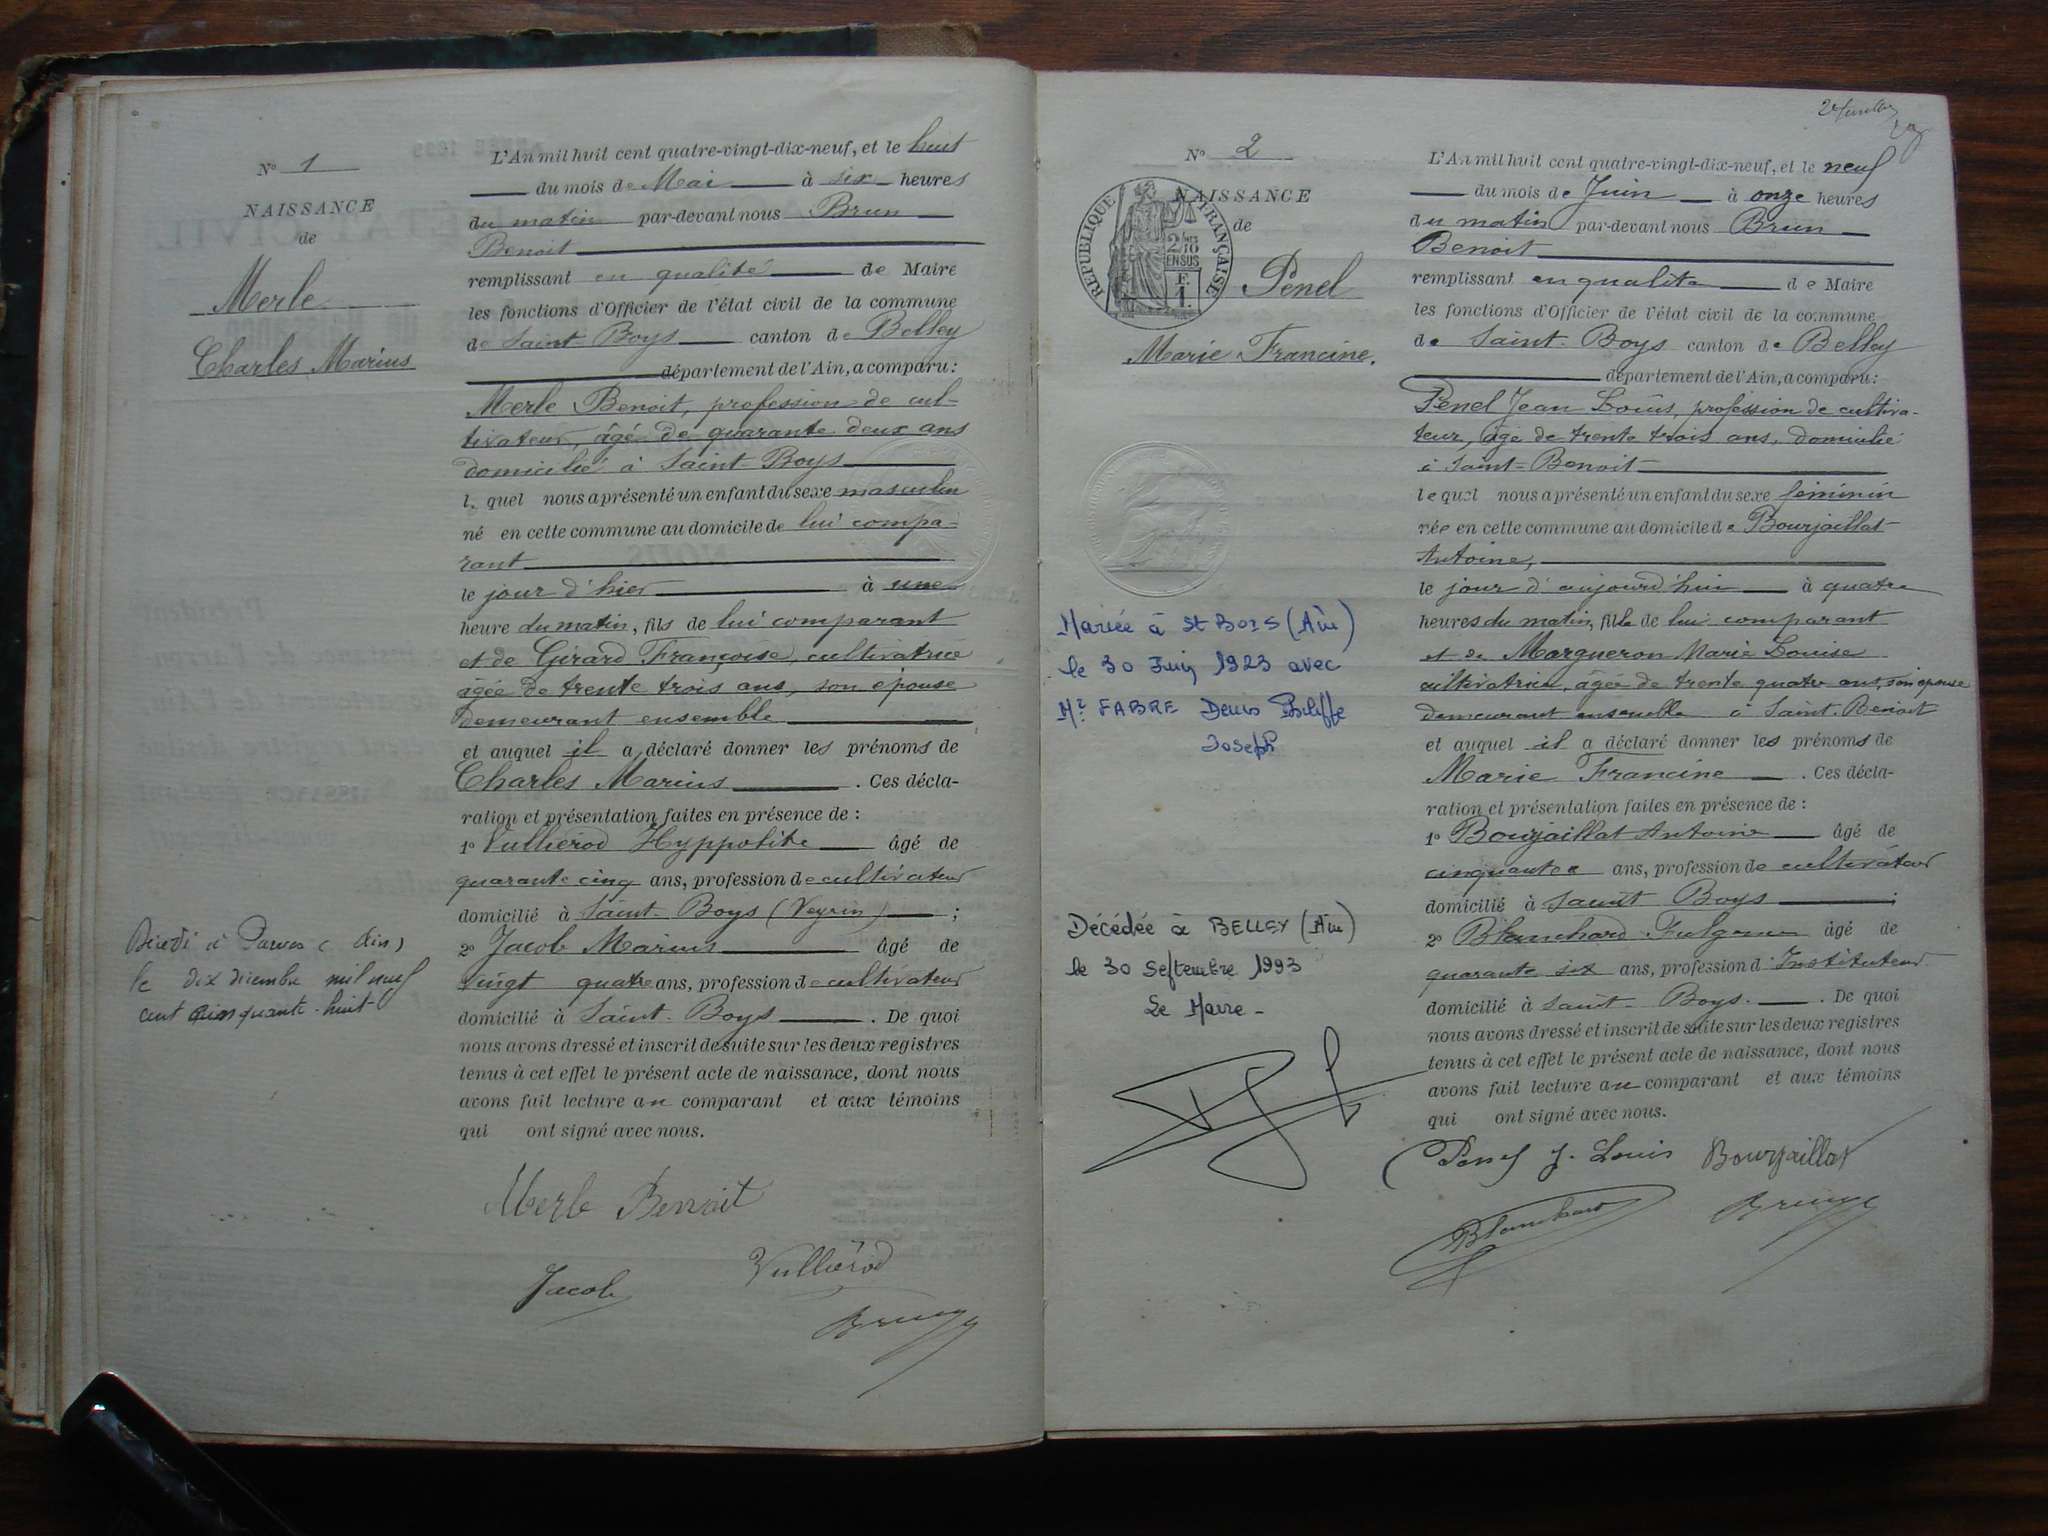 N° 1
NAISSANCE
de
Merle
Charles Marius
L'An mil huit cent quatre-vingt-dix-neuf, et le huit
du mois de Mai à six heures
du matin par-devant nous Brun
Benoit
remplissant en qualité de Maire
les fonctions d'Officier de l'état civil de la commune
de Saint Boys canton de Belley
département de l'Ain, a comparu :
Merle Benoit, profession de cul-
tivateur, âgé de quarante deux ans
domicilié à Saint-Boys
lequel nous a présenté un enfant du sexe masculin
né en cette commune au domicile de lui compa-
rant
le jour d'hier à une
heure du matin, fils de lui comparant
et de Girard Françoise, cultivatrice
âgée de trente trois ans, son épouse
demeurant ensemble
et auquel il a déclaré donner les prénoms de
Charles Marius . Ces décla-
ration et présentation faites en présence de :
1° Vulliérod Hyppolite âgé de
quarante cinq ans, profession de cultivateur
domicilié à Saint-Boys (Veyrin) ;
2° Jacob Marius âgé de
vingt quatre ans, profession de cultivateur
domicilié à Saint-Boys . De quoi
nous avons dressé et inscrit de suite sur les deux registres
tenus à cet effet le présent acte de naissance, dont nous
avons fait lecture au comparant et aux témoins
qui ont signé avec nous.
Merle Benoit
Jacob Vulliérod
Brun
Décédé à Parves (Ain)
le dix décembre mil neuf
cent cinquante-huit
N° 2
NAISSANCE
de
RÉPUBLIQUE FRANÇAISE
Penel
Marie Francine.
Mariée à St Bois (Ain)
le 30 Juin 1923 avec
Mr FABRE Denis Philippe
Joseph
Décédée à BELLEY (Ain)
le 30 Septembre 1993
Le Maire -
L'An mil huit cent quatre-vingt-dix-neuf, et le neuf
du mois de Juin à onze heures
du matin par-devant nous Brun
Benoit
remplissant en qualité de Maire
les fonctions d'Officier de l'état civil de la commune
de Saint-Boys canton de Belley
département de l'Ain, a comparu :
Penel Jean Louis, profession de cultiva-
teur, âgé de trente trois ans, domicilié
à Saint-Benoit
lequel nous a présenté un enfant du sexe féminin
née en cette commune au domicile de Bourjaillat
Antoine,
le jour d'aujourd'hui à quatre
heures du matin, fille de lui comparant
et de Margueron Marie Louise
cultivatrice, âgée de trente quatre ans, son épouse
demeurant ensemble à Saint-Benoit
et auquel il a déclaré donner les prénoms de
Marie Francine . Ces décla-
ration et présentation faites en présence de :
1° Bourjaillat Antoine âgé de
cinquante ans, profession de cultivateur
domicilié à Saint Boys ;
2° Blanchard âgé de
quarante six ans, profession d'Instituteur
domicilié à Saint Boys. . De quoi
nous avons dressé et inscrit de suite sur les deux registres
tenus à cet effet le présent acte de naissance, dont nous
avons fait lecture au comparant et aux témoins
qui ont signé avec nous.
Penel J. Louis Bourjaillat
Blanchard Brun